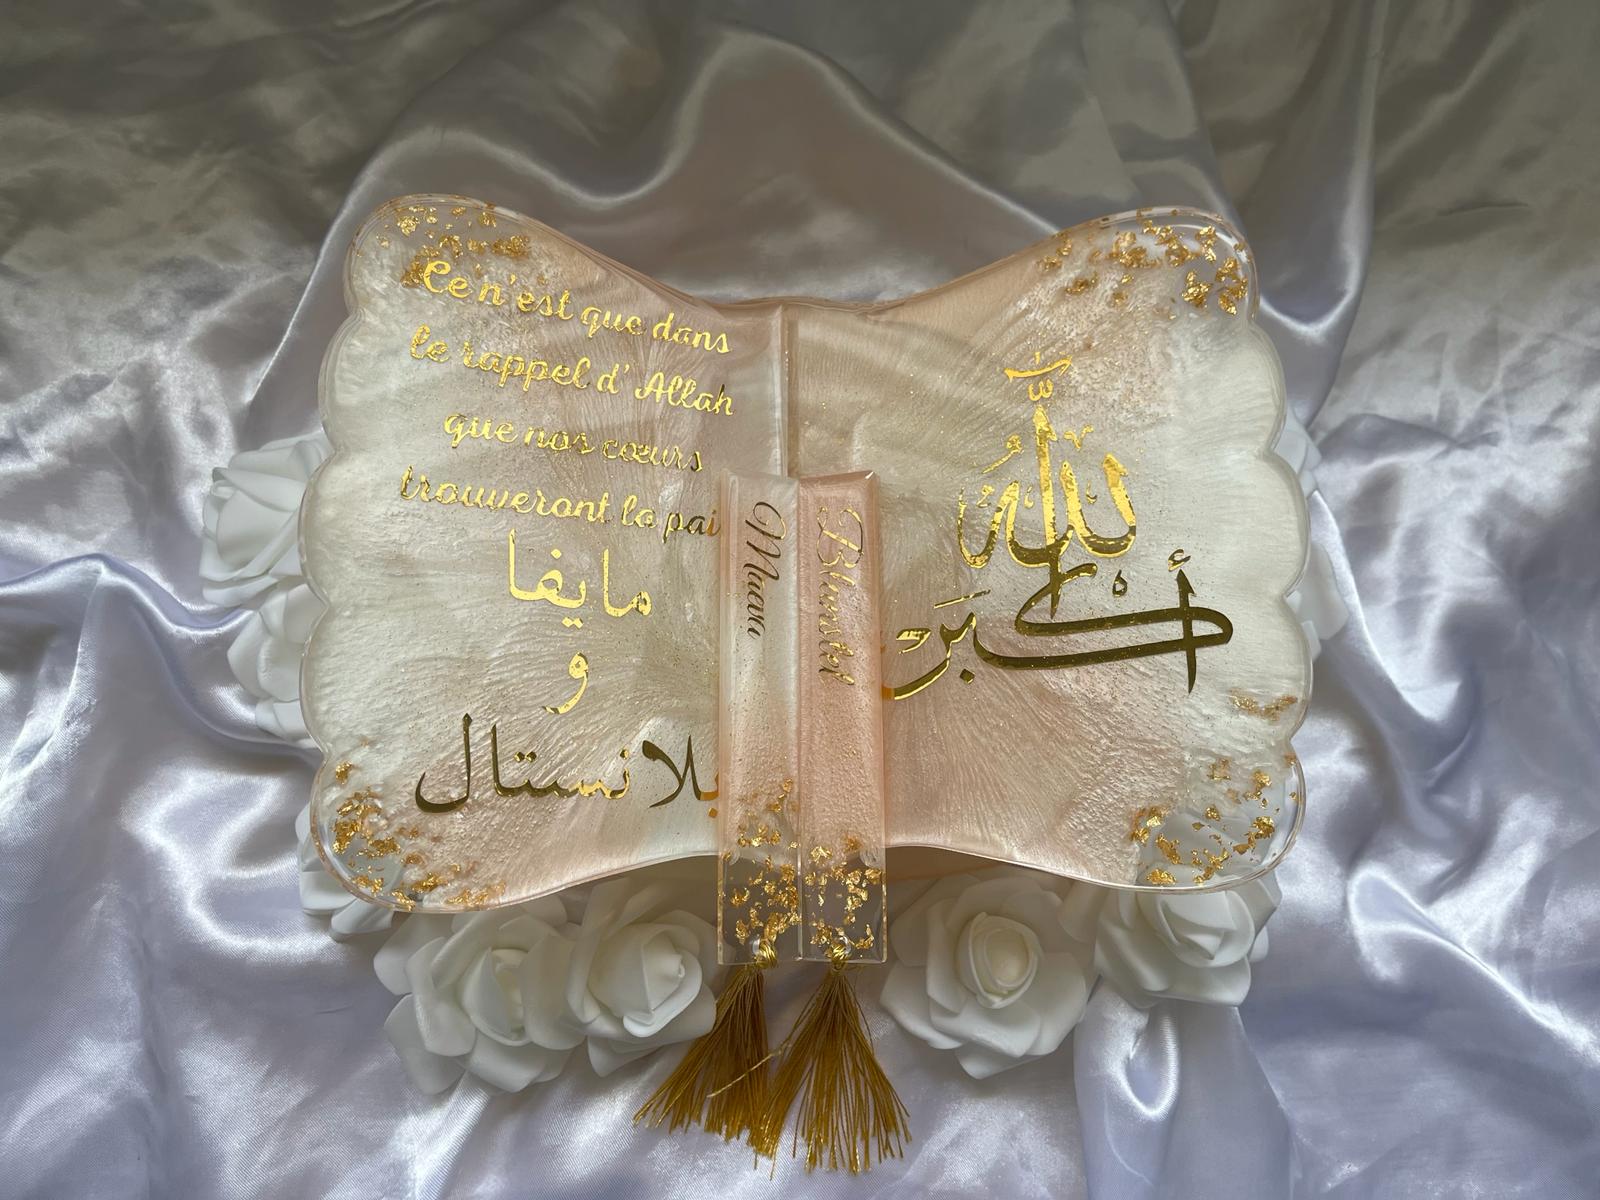 Ce n'est que dans
le rappel d'Allah
que nos cœurs
trouveront la pai
مايفا
و
بلانستال
Maeva
Blanstel
الله
أكبر